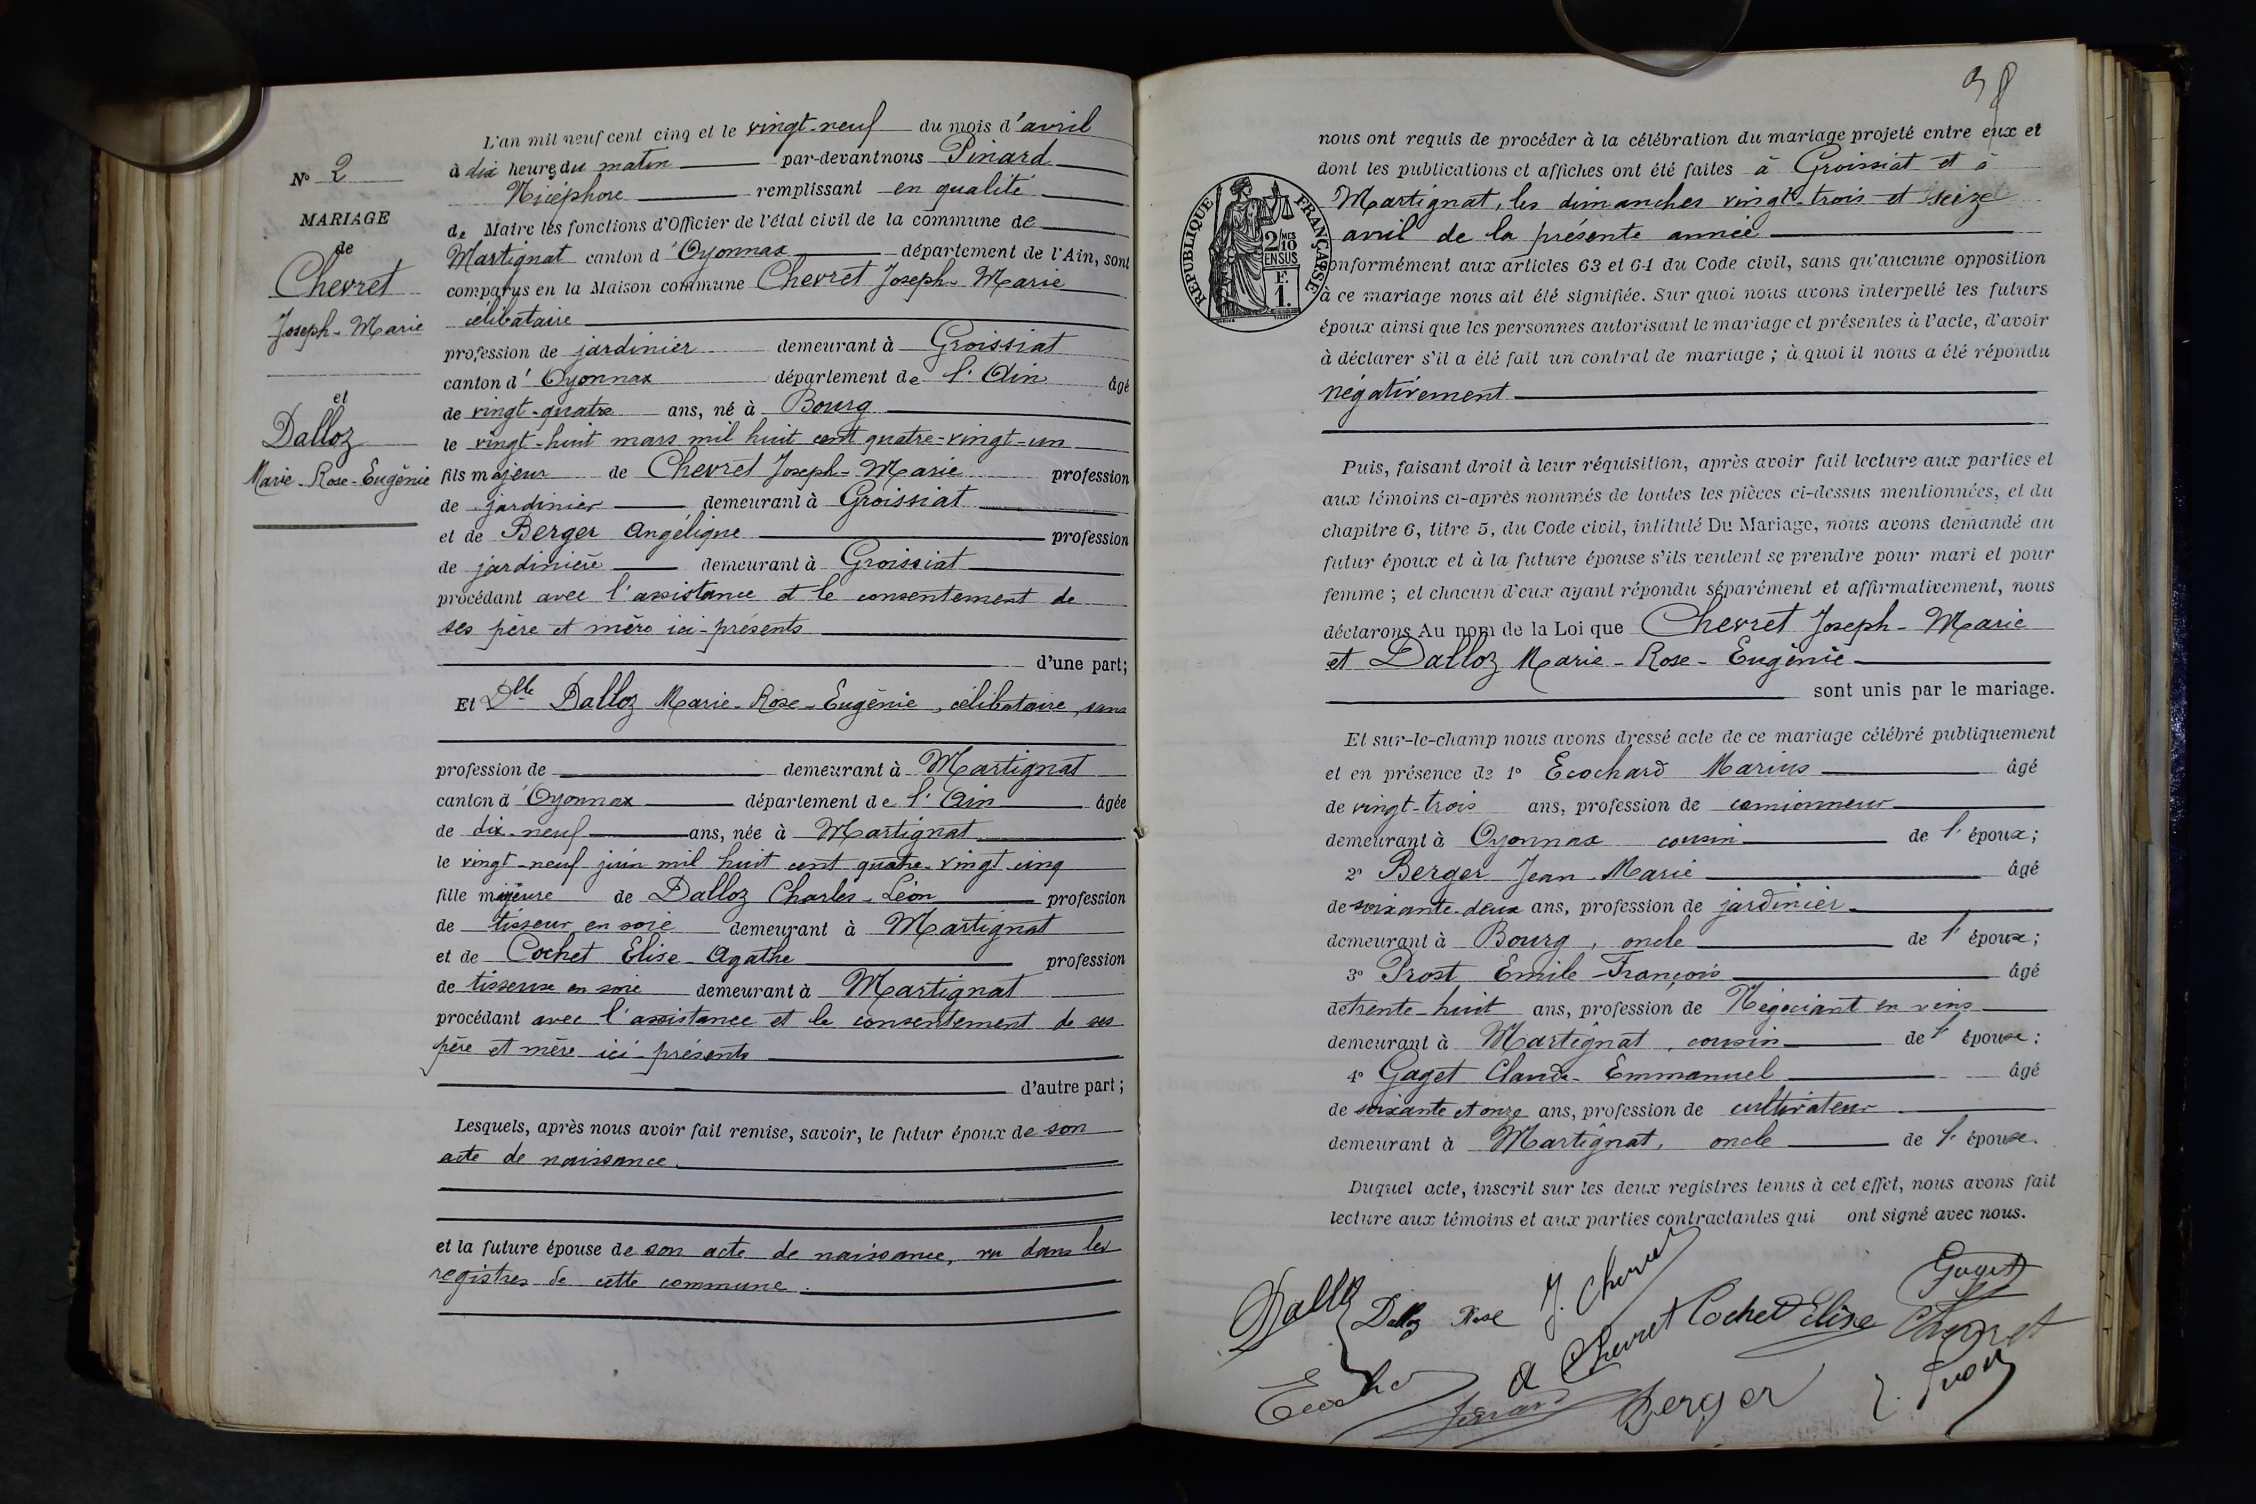 N° 2
MARIAGE
de
Chevret
Joseph-Marie
et
Dalloz
Marie-Rose-Eugénie
L'an mil neuf cent cinq et le vingt-neuf du mois d'avril
à dix heures du matin par-devant nous Pinard
Nicéphore remplissant en qualité
de Maire les fonctions d'Officier de l'état civil de la commune de
Martignat canton d'Oyonnax département de l'Ain, sont
comparus en la Maison commune Chevret Joseph-Marie
célibataire
profession de jardinier demeurant à Groissiat
canton d'Oyonnax département de l'Ain âgé
de vingt-quatre ans, né à Bourg
le vingt-huit mars mil huit cent quatre-vingt-un
fils majeur de Chevret Joseph-Marie profession
de jardinier demeurant à Groissiat
et de Berger Angélique profession
de jardinière demeurant à Groissiat
procédant avec l'assistance et le consentement de
ses père et mère ici-présents
d'une part;
Et Dlle Dalloz Marie-Rose-Eugénie, célibataire, sans
profession de demeurant à Martignat
canton d'Oyonnax département de l'Ain âgée
de dix-neuf ans, née à Martignat
le vingt-neuf juin mil huit cent quatre-vingt-cinq
fille mineure de Dalloz Charles-Léon profession
de tisseur en soie demeurant à Martignat
et de Cochet Elise-Agathe profession
de tisseuse en soie demeurant à Martignat
procédant avec l'assistance et le consentement de ses
père et mère ici-présents
d'autre part;
Lesquels, après nous avoir fait remise, savoir, le futur époux de son
acte de naissance.
et la future épouse de son acte de naissance, vu dans les
registres de cette commune.
nous ont requis de procéder à la célébration du mariage projeté entre eux et
dont les publications et affiches ont été faites à Groissiat et à
Martignat, les dimanches vingt-trois et seize
avril de la présente année
RÉPUBLIQUE FRANÇAISE
2/10 EN SUS
F.
1.
conformément aux articles 63 et 64 du Code civil, sans qu'aucune opposition
à ce mariage nous ait été signifiée. Sur quoi nous avons interpellé les futurs
époux ainsi que les personnes autorisant le mariage et présentes à l'acte, d'avoir
à déclarer s'il a été fait un contrat de mariage ; à quoi il nous a été répondu
négativement
Puis, faisant droit à leur réquisition, après avoir fait lecture aux parties et
aux témoins ci-après nommés de toutes les pièces ci-dessus mentionnées, et du
chapitre 6, titre 5, du Code civil, intitulé Du Mariage, nous avons demandé au
futur époux et à la future épouse s'ils veulent se prendre pour mari et pour
femme ; et chacun d'eux ayant répondu séparément et affirmativement, nous
déclarons Au nom de la Loi que Chevret Joseph-Marie
et Dalloz Marie-Rose-Eugénie
sont unis par le mariage.
Et sur-le-champ nous avons dressé acte de ce mariage célébré publiquement
et en présence de 1° Ecochard Marius âgé
de vingt-trois ans, profession de camionneur
demeurant à Oyonnax cousin de l'époux;
2° Berger Jean-Marie âgé
de soixante-deux ans, profession de jardinier
demeurant à Bourg, oncle de l'époux;
3° Prost Emile-François âgé
de trente-huit ans, profession de Négociant en vins
demeurant à Martignat, cousin de l'épouse;
4° Gaget Claude-Emmanuel âgé
de soixante et onze ans, profession de cultivateur
demeurant à Martignat, oncle de l'épouse.
Duquel acte, inscrit sur les deux registres tenus à cet effet, nous avons fait
lecture aux témoins et aux parties contractantes qui ont signé avec nous.
Dalloz Dalloz Rose J. Chevret Gaget
A Chevret Cochet Elise Chevret
Pinard Berger